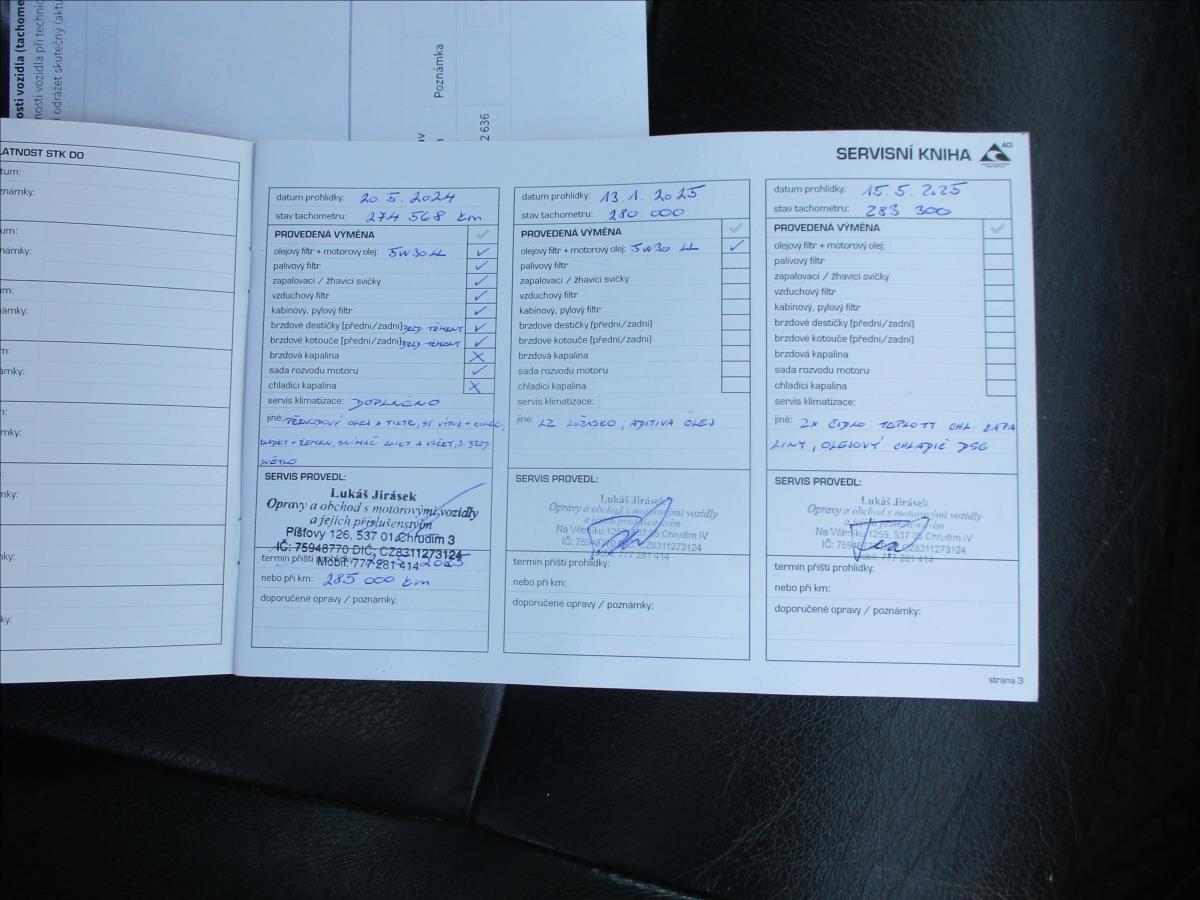 osti vozidla (tachome
nosti vozidla při technic
odrážet skutečný (aktu
Poznámka
2 636
LATNOST STK DO
tum:
známky:
um:
námky:
um:
ámky:
m:
amky:
n:
mky:
n:
mky:
nky:
ky:
SERVISNÍ KNIHA
ACI
datum prohlídky: 20. 5. 2024
stav tachometru: 274 568 km
PROVEDENÁ VÝMĚNA
olejový filtr + motorový olej: 5W30LL ✓
palivový filtr ✓
zapalovací / žhavící svíčky ✓
vzduchový filtr ✓
kabinový, pylový filtr ✓
brzdové destičky [přední/zadní] ✓
brzdové kotouče [přední/zadní] ✓
brzdová kapalina X
sada rozvodu motoru ✓
chladící kapalina X
servis klimatizace: DOPLNĚNO
jiné: PŘEVODOVÝ OLEJ + FILTR,
+ ŘEMEN, SNÍMAČ
SVĚTLO
SERVIS PROVEDL:
Lukáš Jirásek
Opravy a obchod s motorovými vozidly
a jejich příslušenstvím
Píšťovy 126, 537 01 Chrudim 3
IČ: 75948770 DIČ: CZ8311273124
Mobil: 777 281 414
termín příští prohlídky: 2025
nebo při km: 285 000 km
doporučené opravy / poznámky:
datum prohlídky: 13. 1. 2025
stav tachometru: 280 000
PROVEDENÁ VÝMĚNA
olejový filtr + motorový olej: 5W30 LL ✓
palivový filtr
zapalovací / žhavící svíčky
vzduchový filtr
kabinový, pylový filtr
brzdové destičky [přední/zadní]
brzdové kotouče [přední/zadní]
brzdová kapalina
sada rozvodu motoru
chladící kapalina
servis klimatizace:
jiné: LZ LOŽISKO, ADITIVA OLEJ
SERVIS PROVEDL:
Lukáš Jirásek
Opravy a obchod s motorovými vozidly
a jejich příslušenstvím
Na Větrníku 1259, 537 05 Chrudim IV
IČ: 75948770, DIČ: CZ8311273124
Mobil: 777 281 414
termín příští prohlídky:
nebo při km:
doporučené opravy / poznámky:
datum prohlídky: 15. 5. 2025
stav tachometru: 283 300
PROVEDENÁ VÝMĚNA
olejový filtr + motorový olej:
palivový filtr
zapalovací / žhavící svíčky
vzduchový filtr
kabinový, pylový filtr
brzdové destičky [přední/zadní]
brzdové kotouče [přední/zadní]
brzdová kapalina
sada rozvodu motoru
chladící kapalina
servis klimatizace:
jiné: 2x ČIDLO TEPLOTY CHL. KAPA
LINY, OLEJOVÝ CHLADIČ DSG
SERVIS PROVEDL:
Lukáš Jirásek
Opravy a obchod s motorovými vozidly
a jejich příslušenstvím
Na Větrníku 1259, 537 05 Chrudim IV
IČ: 75948770, DIČ: CZ8311273124
Mobil: 777 281 414
termín příští prohlídky:
nebo při km:
doporučené opravy / poznámky:
strana 3